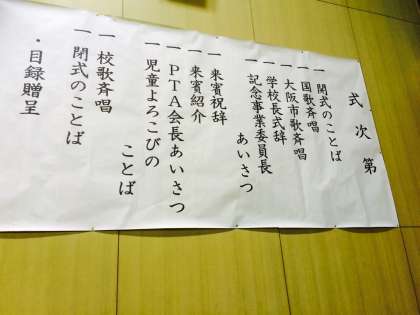 式次第
一 閉式のことば
一 国歌斉唱
一 大阪市歌斉唱
一 学校長式辞
一 記念事業委員長
あいさつ
一 来賓祝辞
一 来賓紹介
一 PTA会長あいさつ
一 児童よろこびの
ことば
一 校歌斉唱
一 閉式のことば
・目録贈呈